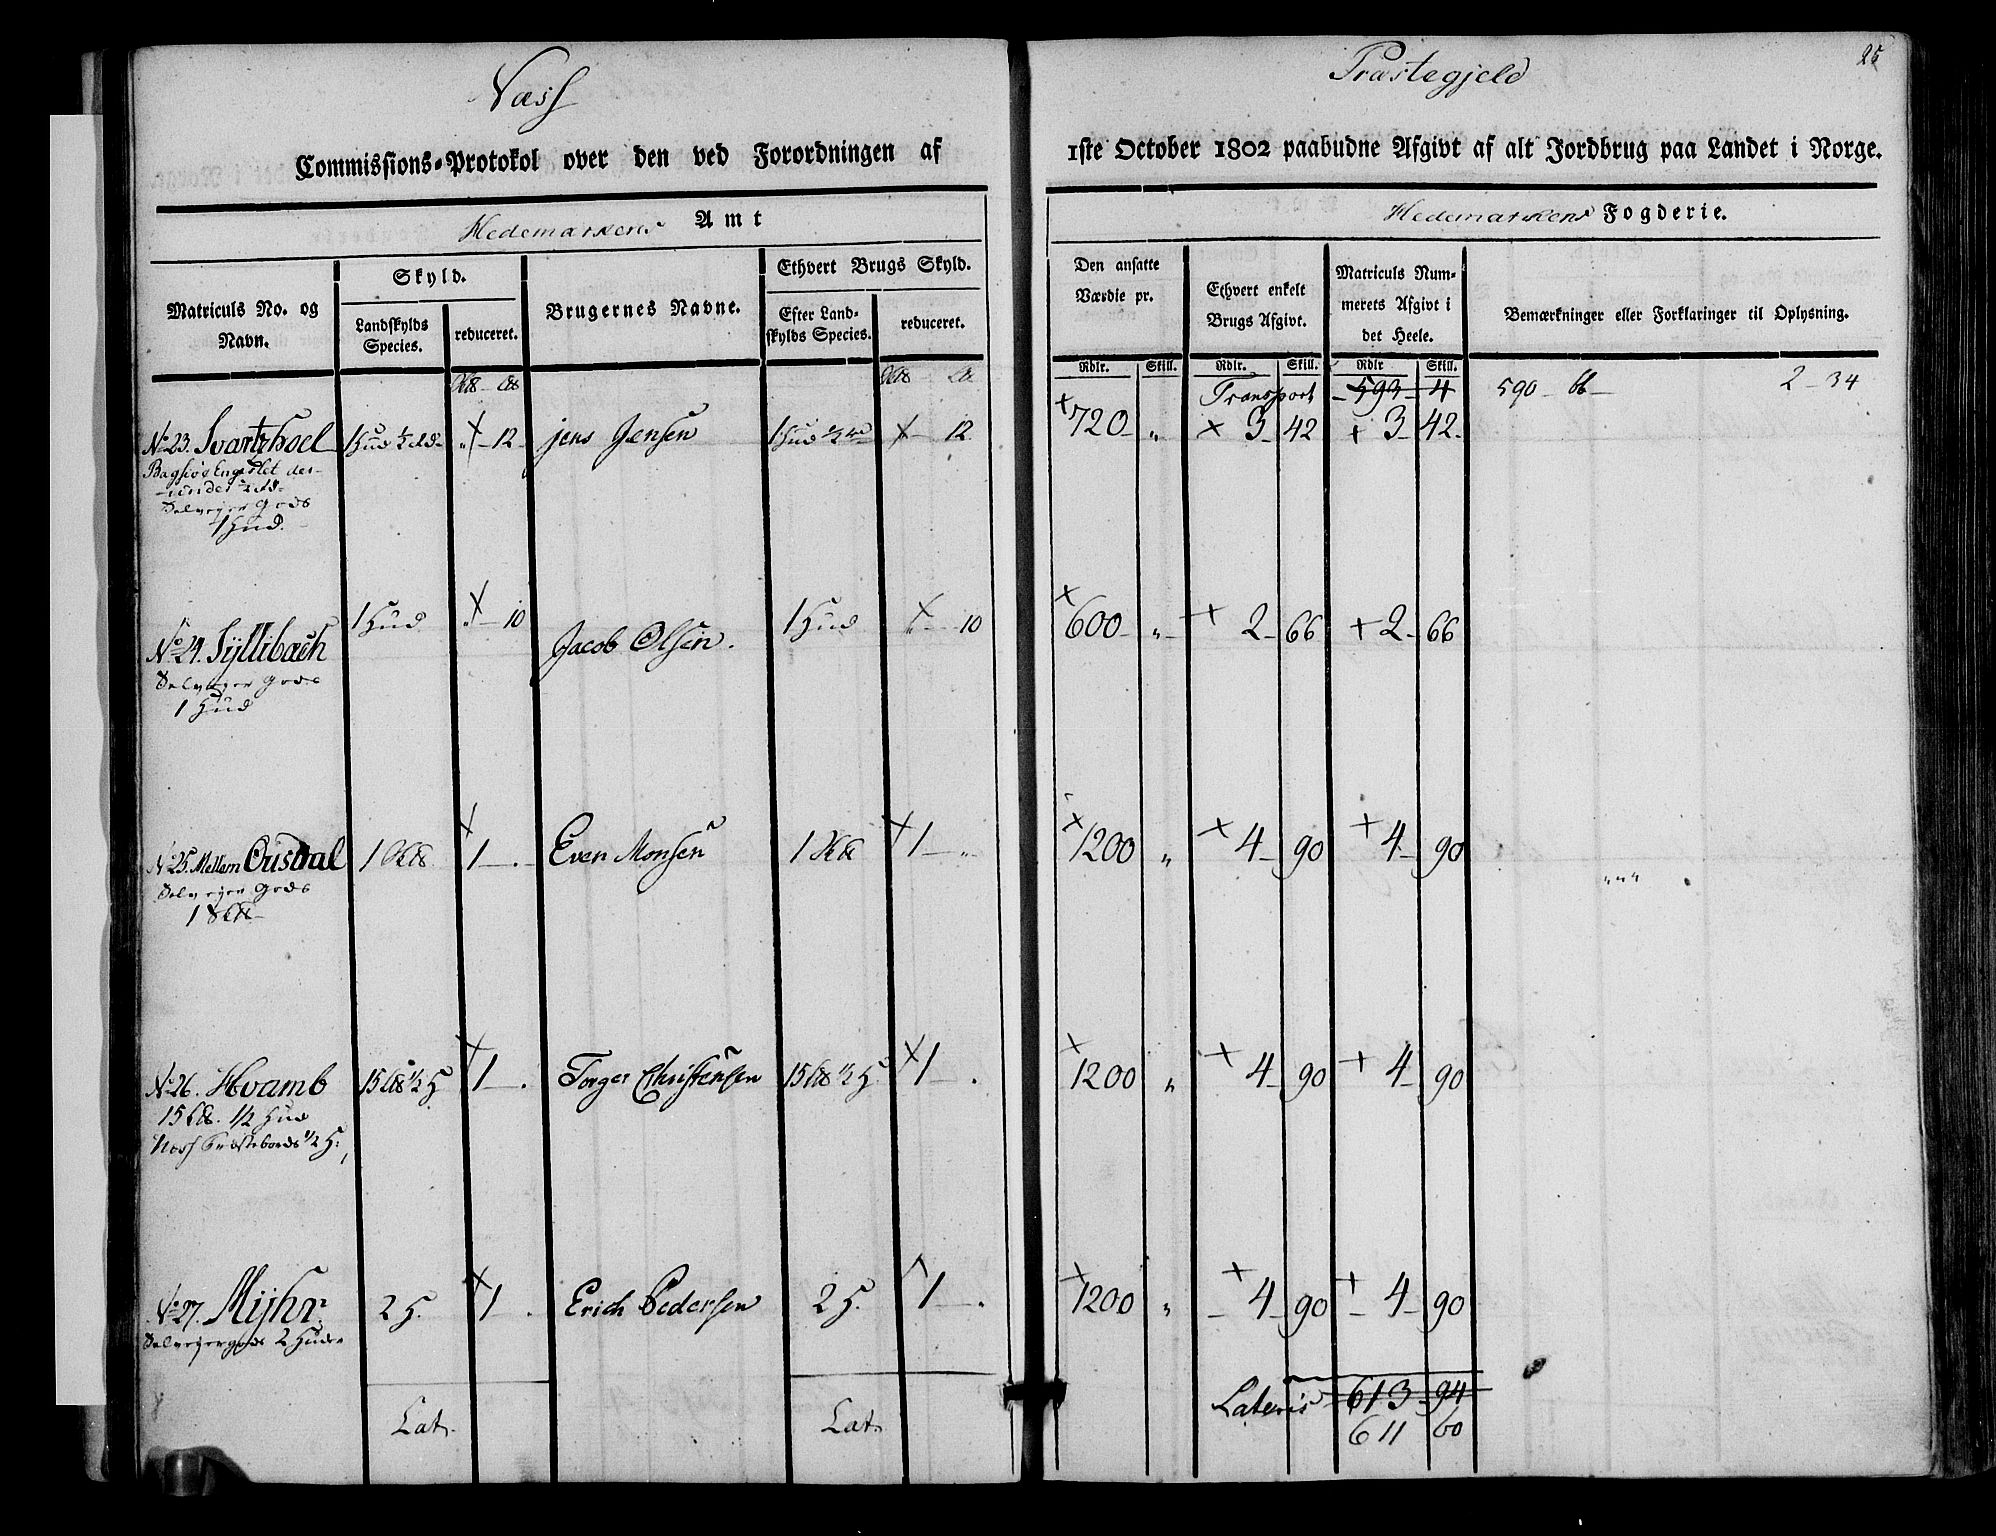 Næss
Præstegjeld
25
Commissions-Protokol over den ved Forordningen af
1ste October 1802 paabudne Afgivt af alt Jordbrug paa Landet i Norge.
Hedemarkens Amt
Hedemarkens Fogderie.
Matriculs No. og Navn.
Skyld.
Landskylds Species.
reduceret.
Brugernes Navne.
Ethvert Brugs Skyld.
Efter Landskylds Species.
reduceret.
Den ansatte Værdie pr.
Ethvert enkelt Brugs Afgivt.
Matriculs Nummerets Afgivt i det Heele.
Bemærkninger eller Forklaringer til Oplysning.
Rdlr. Skill. Rdlr. Skill. Rdlr Skill.
Transport 593 4 590 66 2 - 34
No 23. Svartzhoel 1 Hud 12 jens Jensen 1 Hud 12 720 " 3 42 3 42
Selveyer Gods
1 Hud.
No 24. Syllibach 1 Hud 10 Jacob Olsen. 1 Hud 10 600 " 2 66 2 66
Selveyer Gods
1 Hud
No 25. Mellem Ousdal 1 1 Even Monsen 1 1 1200 " 4 90 4 90
Selveyer Gods
1
No 26. Hvamb 1 ½ H 1 Torger Christensen 1 ½ H. 1 1200 " 4 90 4 90
½ Hud
Næss Præstebords ½ H:
No 27. Mijhr. 2 H. 1 Erich Pedersen 2 H. 1 1200 " 4 90 4 90
Selveyergods 2 Huder
Lat. Lat. Lateris 613 94
611 60